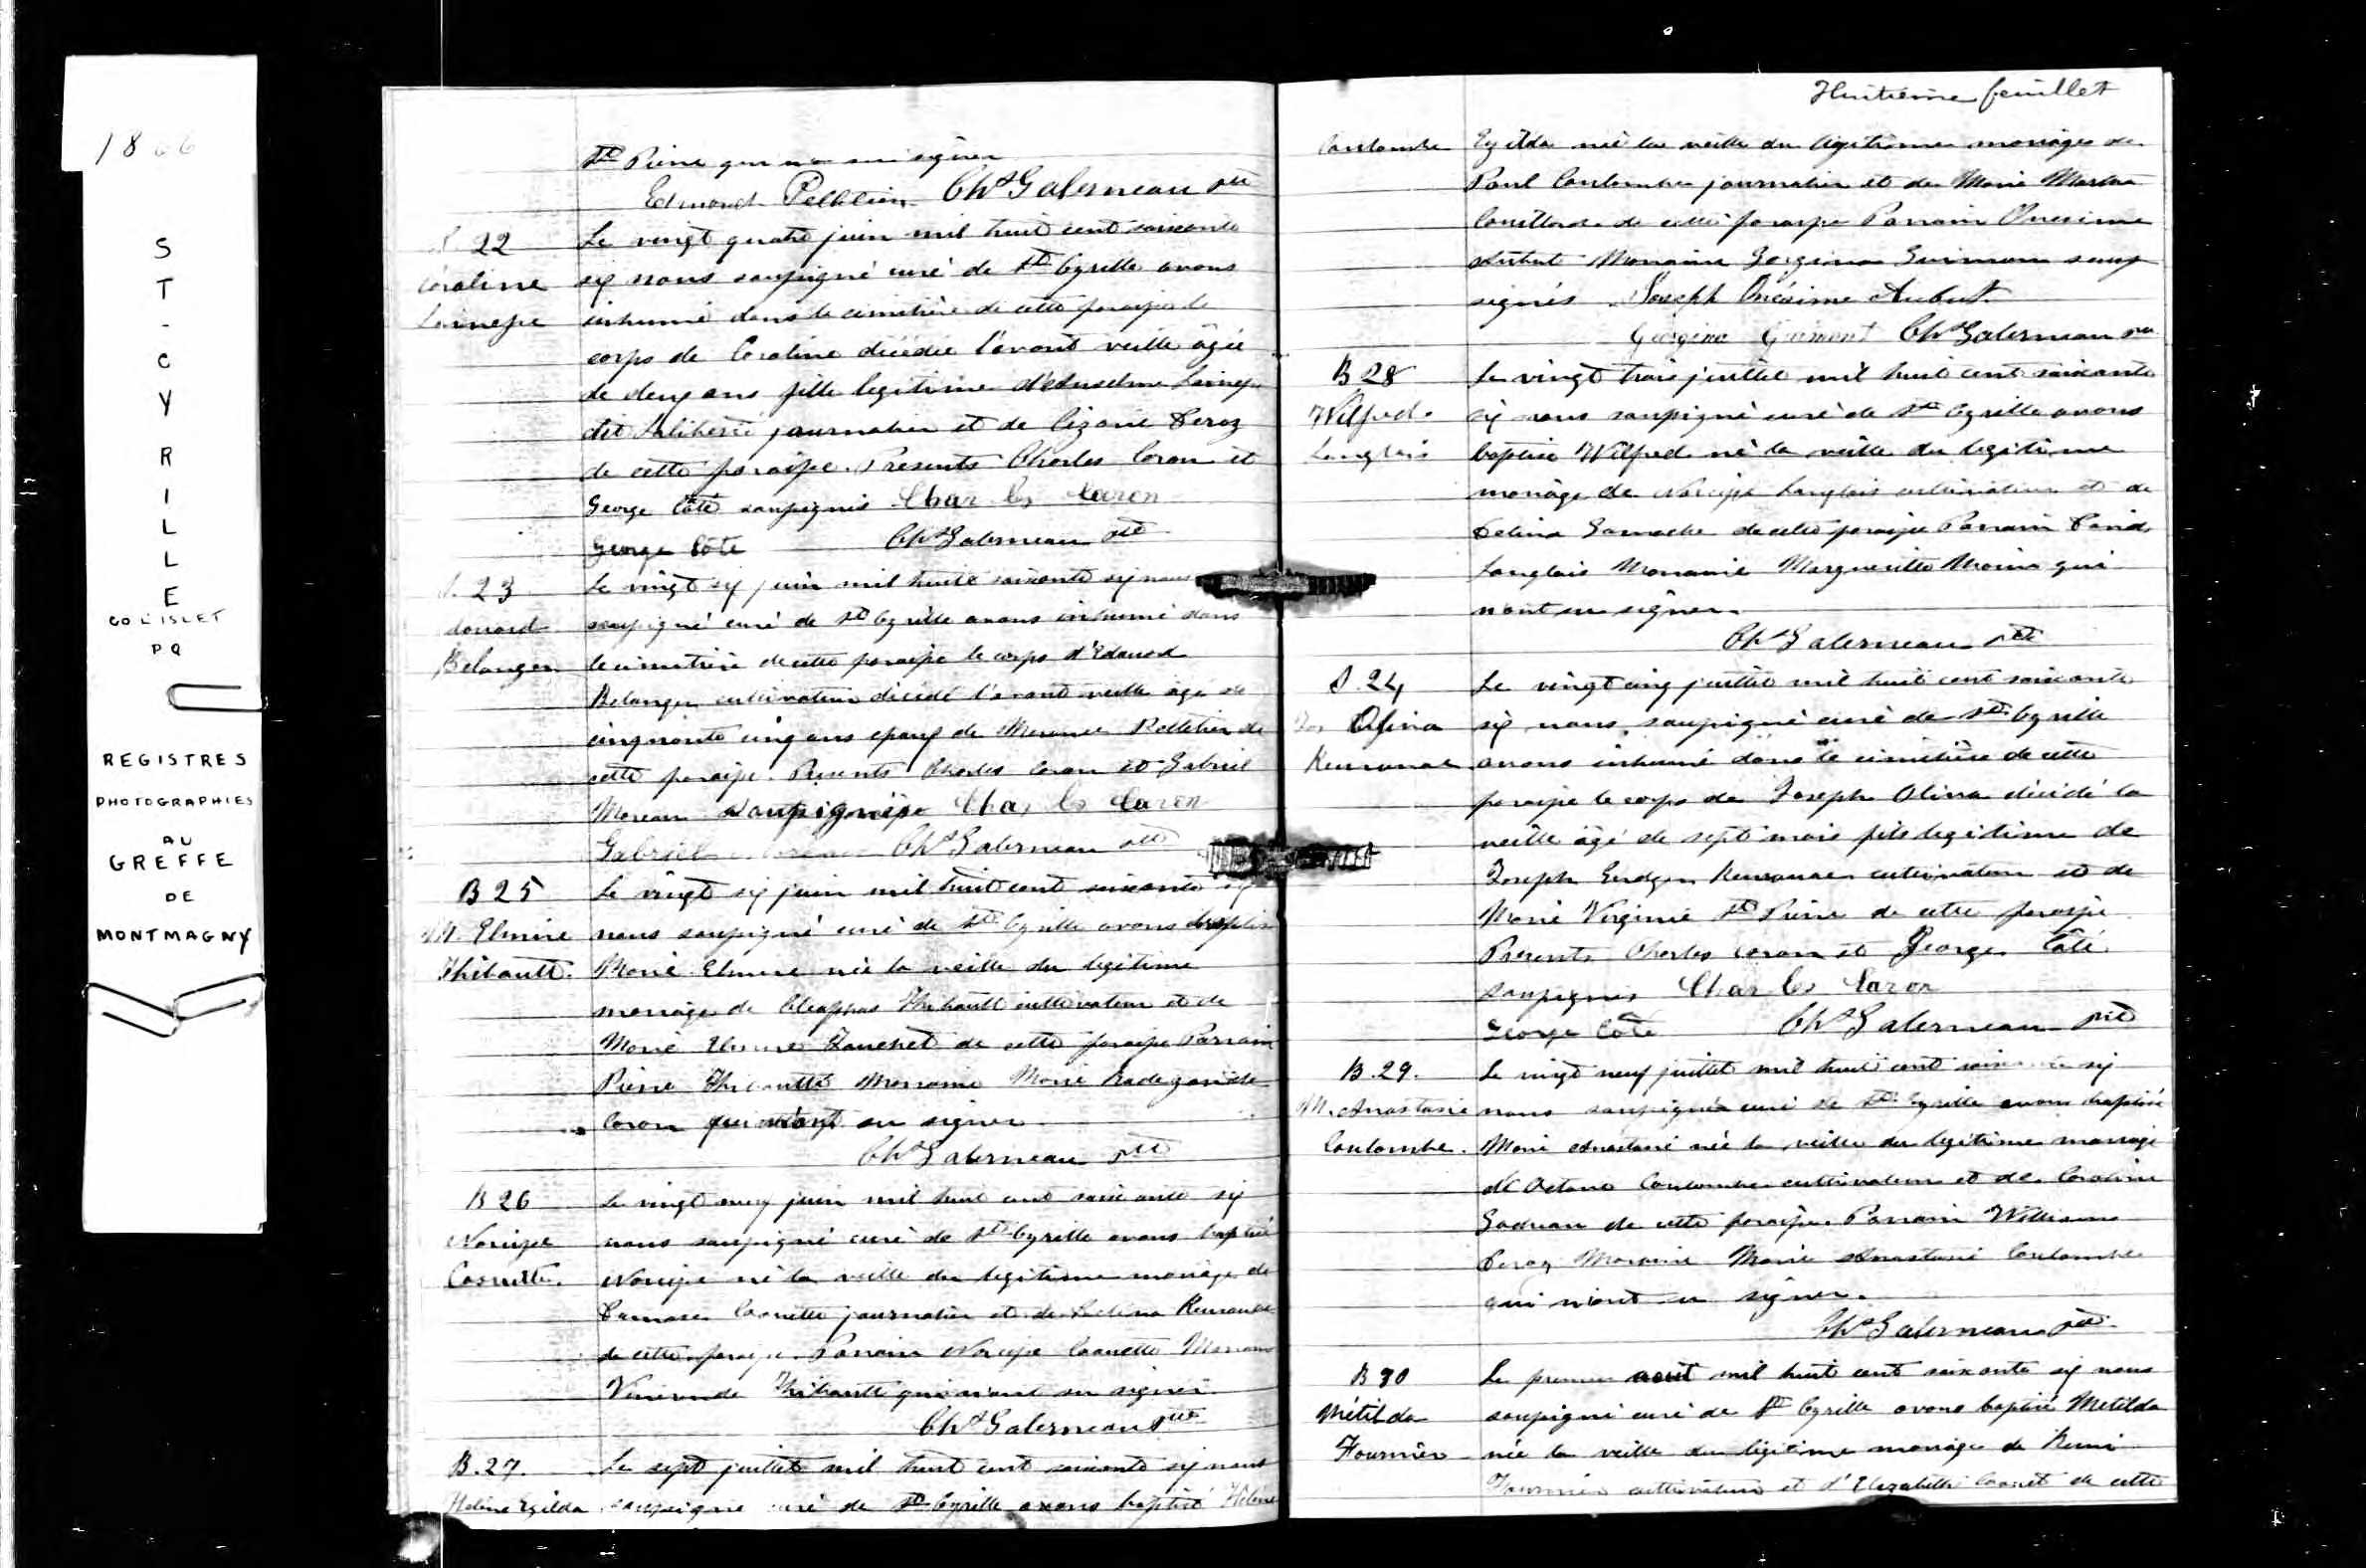 1866
ST-CYRILLE
CO L'ISLET
PQ
REGISTRES
PHOTOGRAPHIES
AU
GREFFE
DE
MONTMAGNY
St Pierre qui
Edmond Pelletier Chs Galerneau ptre
S. 22
Caroline
Lainesse
Le vingt quatre juin mil huit cent soixante
six nous soussigné curé de St Cyrille avons
inhumé dans le cimetière de cette paroisse le
corps de Caroline décédée l'avant veille âgée
de deux ans fille legitime d'Anselme
dit Laliberté journalier et de Cézarie Deroy
de cette paroisse. Présents Charles Caron et
George Côté soussignés Charles Caron
George Côté Chs Galerneau ptre
S. 23
Edouard
Belanger
Le vingt six juin mil huit soixante six nous
soussigné curé de St Cyrille avons inhumé dans
le cimetière de cette paroisse le corps d'Edouard
Belanger cultivateur décédé l'avant veille âgé de
cinquante cinq ans epoux de Pelletier de
cette paroisse. Présents Charles Caron et Gabriel
Moreau soussignés Charles Caron
Gabriel Chs Galerneau ptre
B 25
M. Elmire
Thibault.
Le vingt six juin mil huit cent soixante six
nous soussigné curé de St Cyrille avons baptisé
Marie Elmire née la veille du legitime
mariage de Cléophas Thibault cultivateur et de
Marie de cette paroisse Parrain
Pierre Thibault Marraine Marie Radegonde
Caron qui n'ont su signer
Chs Galerneau ptre
B 26
Narcisse
Caouette.
Le vingt neuf juin mil huit cent soixante six
nous soussigné curé de St Cyrille avons baptisé
Narcisse né la veille du legitime mariage de
Damase Caouette journalier et de
de cette paroisse. Parrain Narcisse Caouette Marraine
Thibault qui n'ont su signer
Chs Galerneau ptre
B. 27.
Hélène Egilda
Le sept juillet mil huit cent soixante six nous
soussigné curé de St Cyrille avons baptisé Hélène
Huitième feuillet
Coulombe
Egilda née la veille du legitime mariage de
Paul Coulombe journalier et de Marie
de cette paroisse Parrain Onesime
Aubut Marraine Georgina sous
signés Joseph Onésime Aubut
Georgina Guimont Chs Galerneau ptre
B 28
Wilfred
Langlais
Le vingt trois juillet mil huit cent soixante
six nous soussigné curé de St Cyrille avons
baptisé Wilfred né la veille du legitime
mariage de Narcisse Langlais cultivateur et de
Delina Gamache de cette paroisse Parrain David
Langlais Marraine Marguerite Morin qui
n'ont su signer.
Chs Galerneau ptre
S. 24
Jos Olina
Le vingt cinq juillet mil huit cent soixante
six nous soussigné curé de St Cyrille
avons inhumé dans le cimetière de cette
paroisse le corps de Joseph Olina décédé la
veille âgé de sept mois fils legitime de
Joseph cultivateur et de
Marie Virginie St Pierre de cette paroisse
Présents Charles Caron et George Côté
soussignés Charles Caron
George Côté Chs Galerneau ptre
B. 29.
M. Anastasie
Coulombe.
Le vingt neuf juillet mil huit cent soixante six
nous soussigné curé de St Cyrille avons baptisé
Marie Anastasie née la veille du legitime mariage
d'Octave Coulombe cultivateur et de Caroline
de cette paroisse. Parrain William
Deroy Marraine Marie Anastasie Coulombe
qui n'ont su signer.
Chs Galerneau ptre
B 30
Métilda
Fournier
Le premier août mil huit cent soixante six nous
soussigné curé de St Cyrille avons baptisé Metilda
née la veille du légitime mariage de Remi
Fournier cultivateur et d'Elizabeth de cette